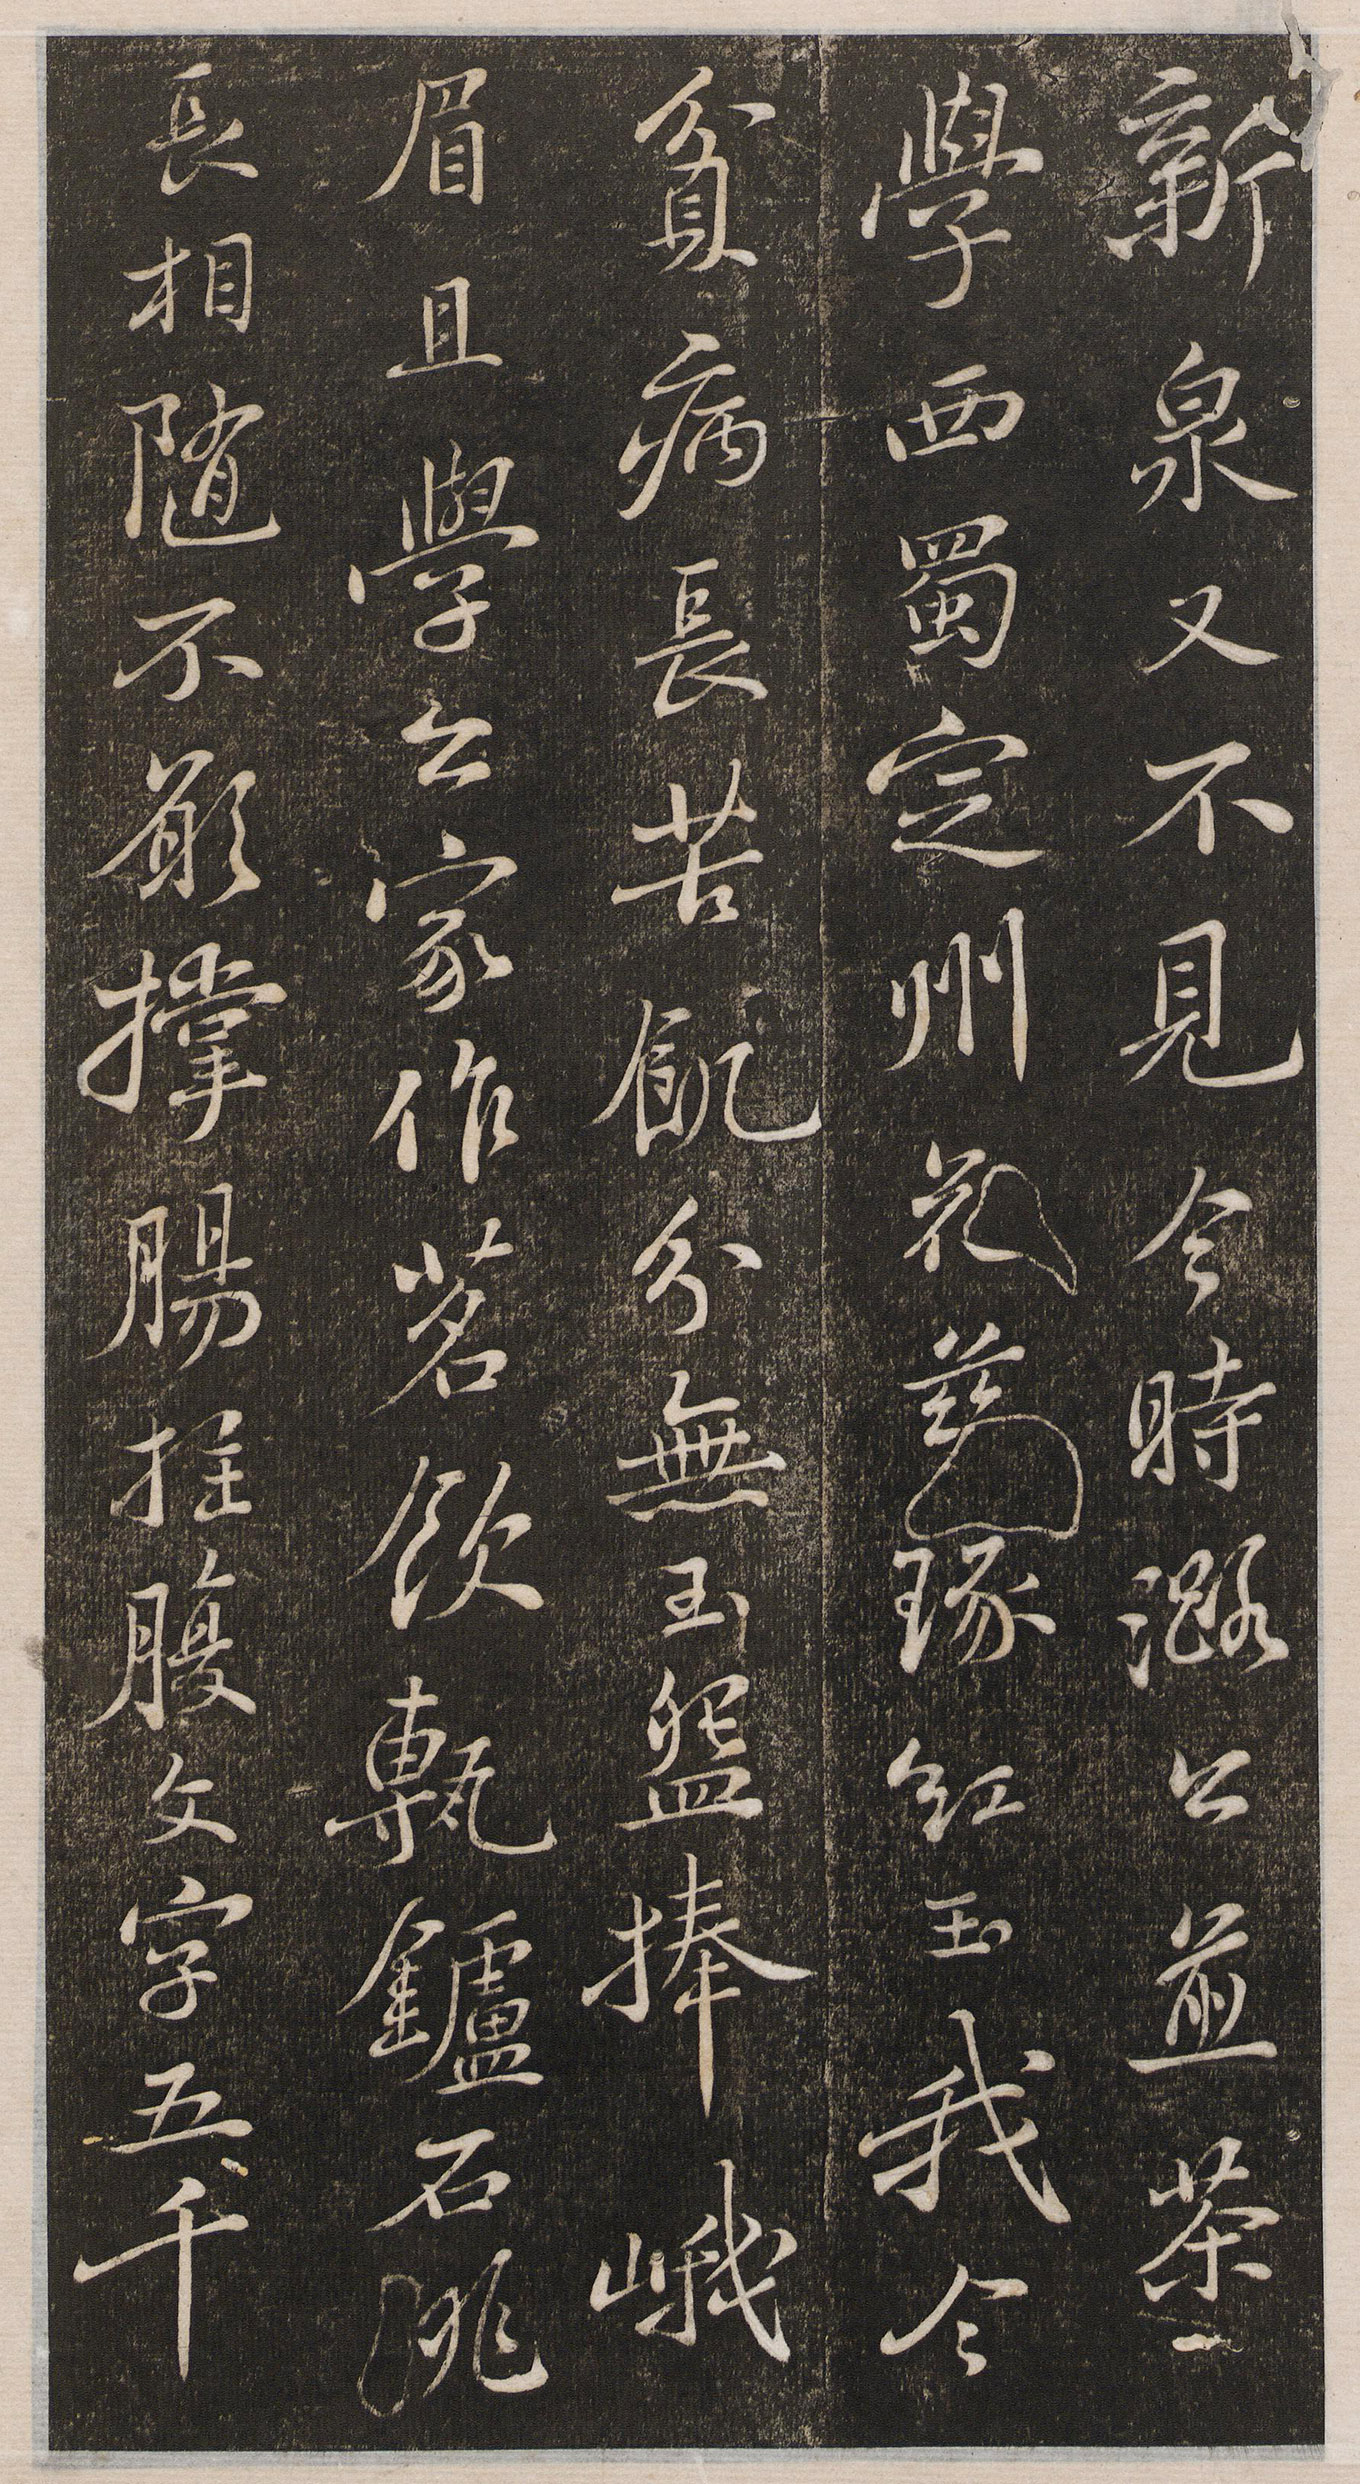 新泉又不見今時潞公煎茶
學西蜀定州花瓷琢紅玉我今
貧病長苦飢分無玉盌捧峨
眉且學公家作茗飲甎鑪石銚
長相隨不願撑腸拄腹文字五千